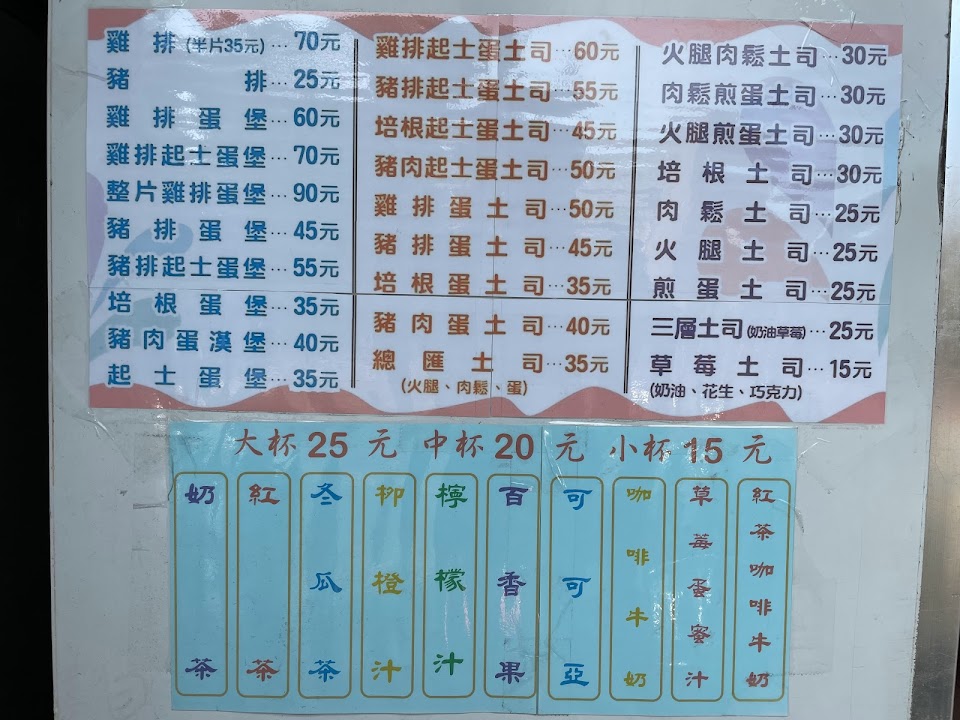 雞排(半片35元)…70元
豬排…25元
雞排蛋堡…60元
雞排起士蛋堡…70元
整片雞排蛋堡…90元
豬排蛋堡…45元
豬排起士蛋堡…55元
培根蛋堡…35元
豬肉蛋漢堡…40元
起士蛋堡…35元
雞排起士蛋土司…60元
豬排起士蛋土司…55元
培根起士蛋土司…45元
豬肉起士蛋土司…50元
雞排蛋土司…50元
豬排蛋土司…45元
培根蛋土司…35元
豬肉蛋土司…40元
總匯土司…35元
(火腿、肉鬆、蛋)
火腿肉鬆土司…30元
肉鬆煎蛋土司…30元
火腿煎蛋土司…30元
培根土司…30元
肉鬆土司…25元
火腿土司…25元
煎蛋土司…25元
三層土司(奶油草莓)…25元
草莓土司…15元
(奶油、花生、巧克力)
大杯25元 中杯20元 小杯15元
奶茶
紅茶
冬瓜茶
柳橙汁
檸檬汁
百香果
可可亞
咖啡牛奶
草莓蛋蜜汁
紅茶咖啡牛奶